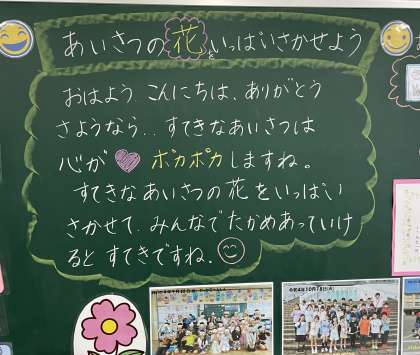 あいさつの花をいっぱいさかせよう
おはよう こんにちは、ありがとう
さようなら‥ すてきなあいさつは
心が ポカポカしますね。
すてきなあいさつの花をいっぱい
さかせて、みんなでたかめあっていけ
ると すてきですね。
令和4年10月18日(火)